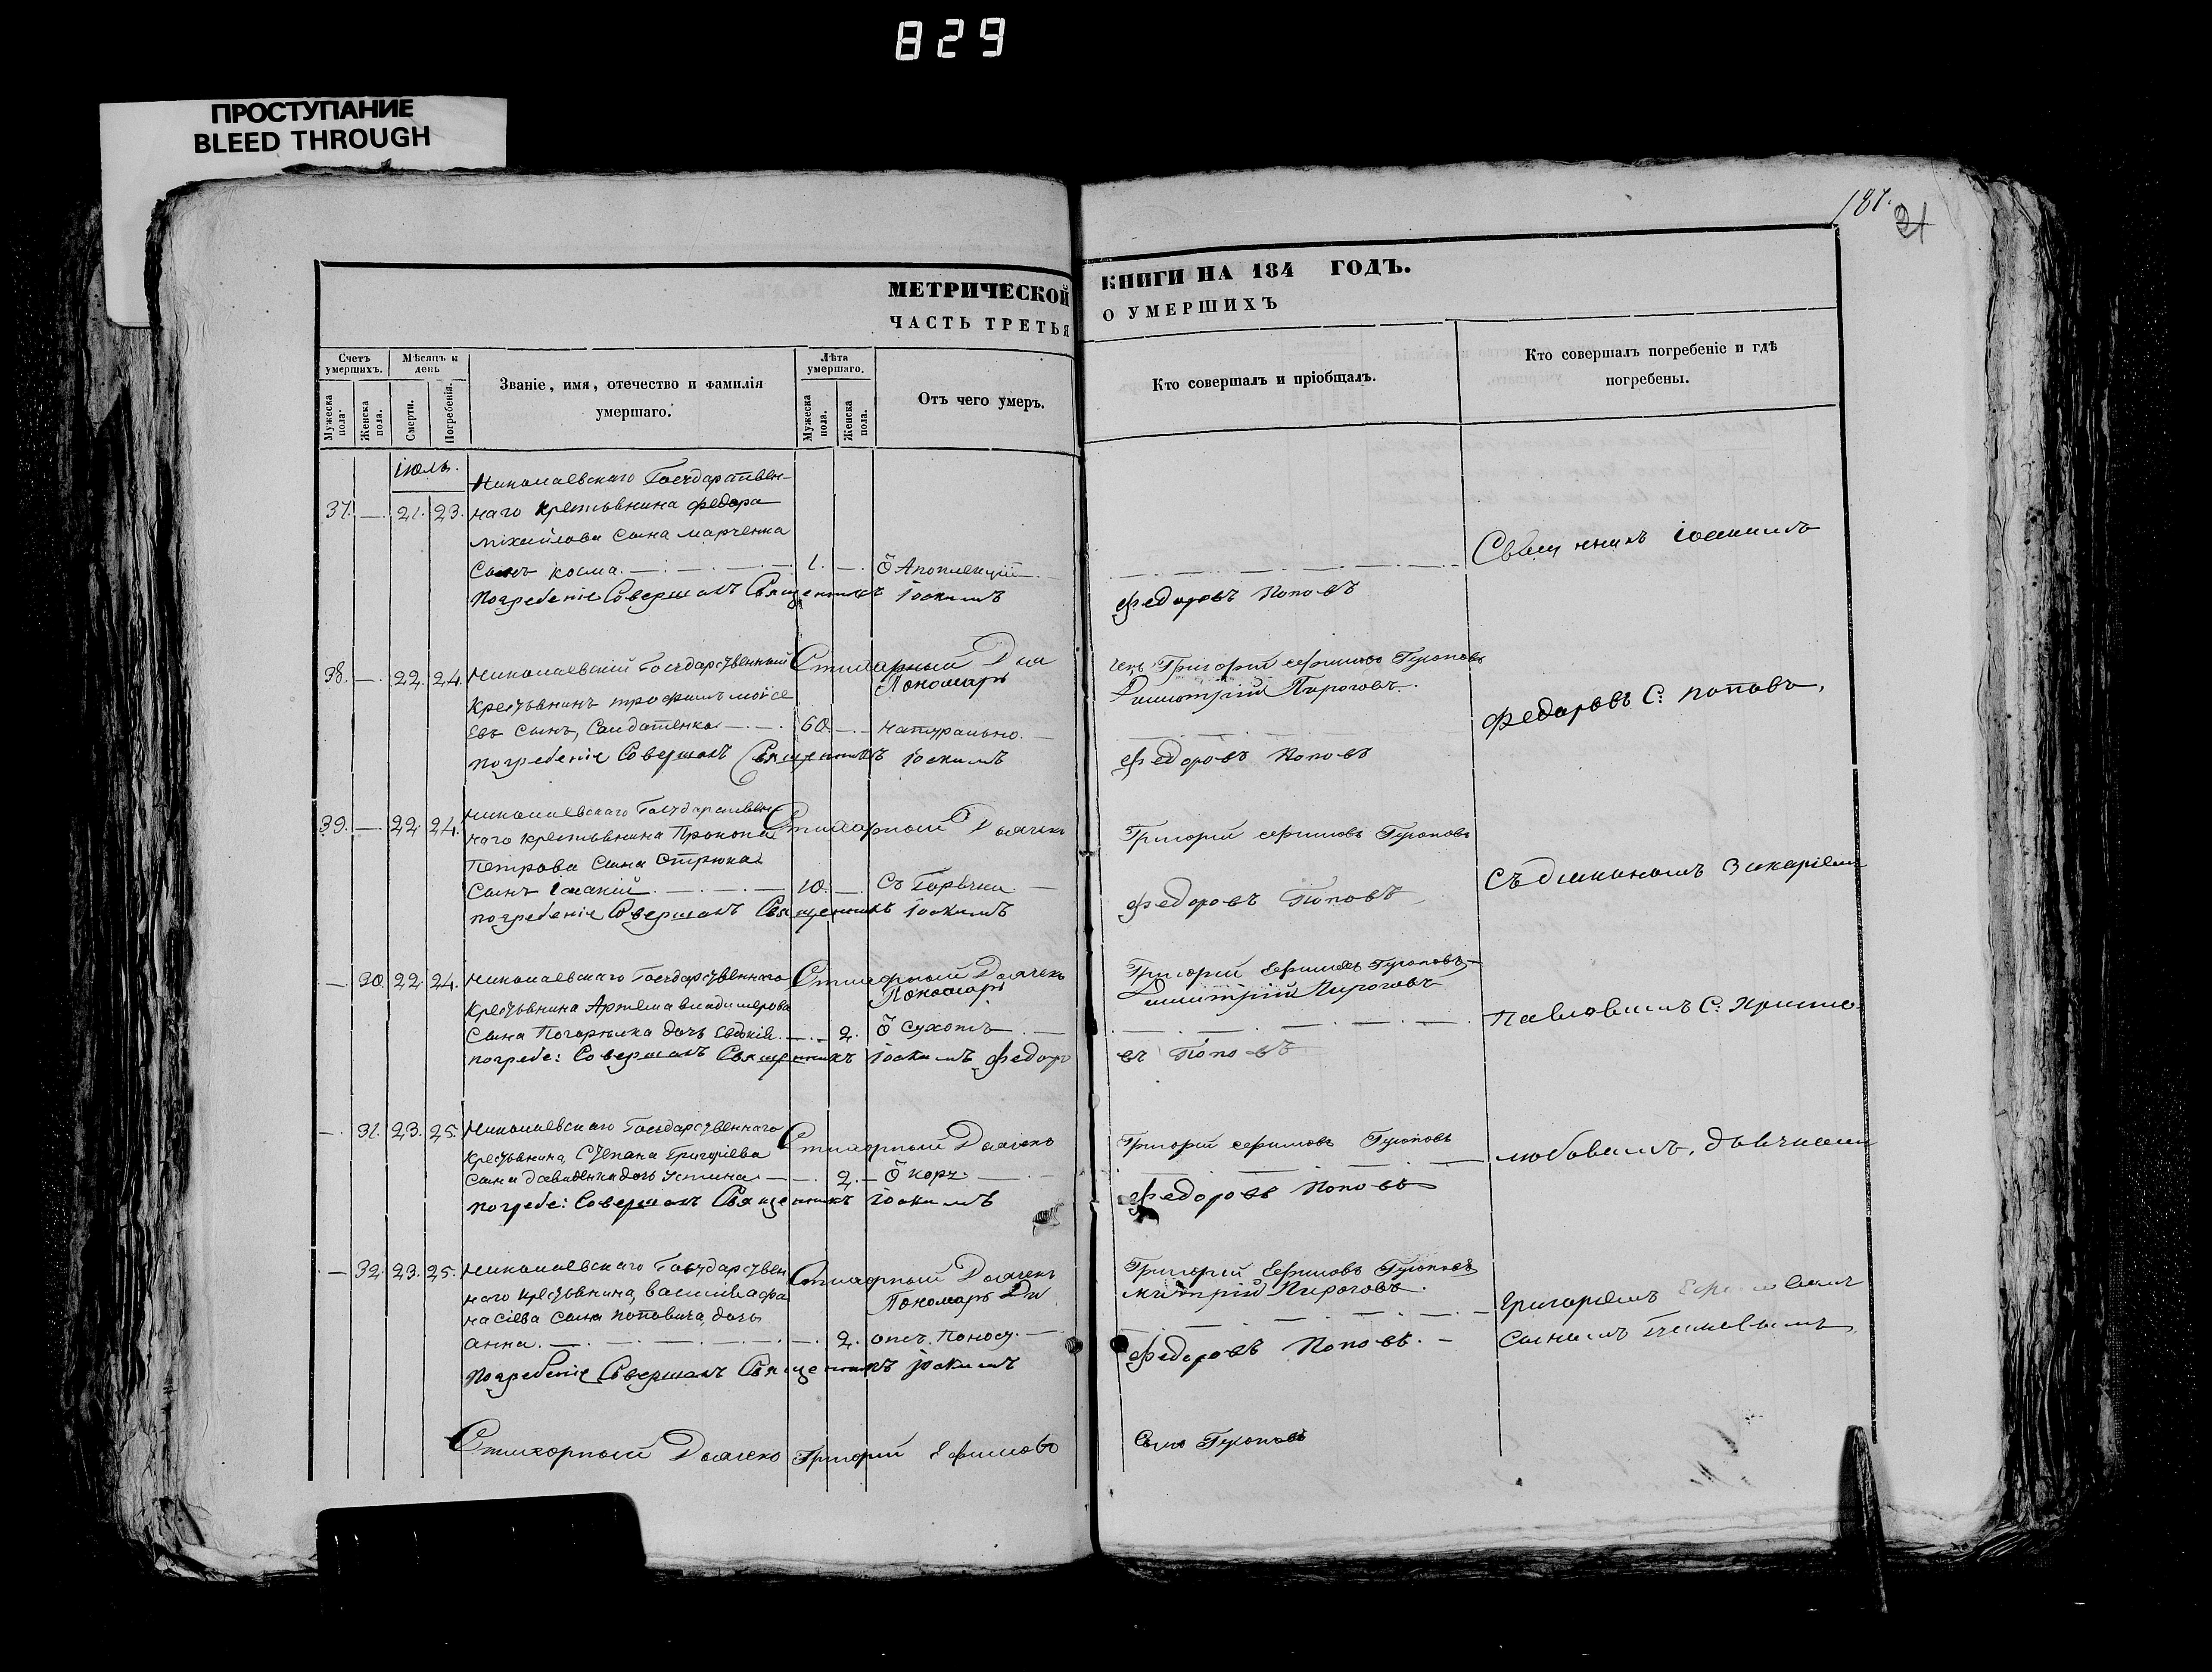 829
ПРОСТУПАНИЕ
BLEED THROUGH
187.
31
МЕТРИЧЕСКОЙ КНИГИ НА 184 ГОДЪ.
ЧАСТЬ ТРЕТЬЯ О УМЕРШИХЪ
Счетъ умершихъ.
Мужеска пола.
Женска пола.
Мѣсяцъ и день
Смерти.
Погребенія.
Званіе, имя, отечество и фамилія
умершаго.
Лѣта умершаго.
Мужеска пола.
Женска пола.
Отъ чего умеръ.
Кто совершалъ и пріобщалъ.
Кто совершалъ погребеніе и гдѣ
погребены.
Іюль.
Николаевскаго Государствен-
37. — 21. 23. наго крестьянина Федора
Міхайлова сына Марченка
Сынъ Косма. — 1. — Ѿ Апоплекціи
Погребеніе Совершалъ Священникъ Іоакимъ Федоровъ Поповъ
Священникъ Іоакимъ
38. — 22. 24. Николаевскій Государственный
Крестьянинъ Трофимъ Моісе
евъ сынъ, Солдатенко — 60. — Натурально.
Стихарный Дьячекъ Григорій Ефимовъ Гугоповъ
Пономарь Димитрій Пироговъ.
погребеніе Совершалъ Священникъ Іоакимъ Федоровъ Поповъ
Федоровъ С: Поповъ,
39. — 22. 24. Николаевскаго Государствен
наго крестьянина Прокопа
Петрова сына Стрюка
Сынъ Іоаній — 10. — Съ Горячки.
Стихарный Дьячекъ Григорій Ефимовъ
погребеніе Совершалъ Священникъ Іоакимъ Федоровъ Поповъ
Съ діакономъ Захаріемъ
— 30. 22. 24. Николаевскаго Государственнаго
Крестьянина Артема Владимерова
Сына Погорѣлка дочь Евдокія — 2. Ѿ Сухотъ
Стихарный Дьячекъ Григорій Ефимовъ
Пономарь Димитрій Пироговъ
погребе: Совершалъ Священникъ Іоакимъ Федоро
въ Поповъ
Павловымъ С:
— 31. 23. 25. Николаевскаго Государственнаго
Крестьянина, Степана Григоріева
сына Давиденка дочь Устина — 2. — Ѿ Корч
Стихарный Дьячекъ Григорій Ефимовъ
погребе: Совершалъ Священникъ Іоакимъ Федоровъ Поповъ
дьячкомъ
— 32. 23. 25. Николаевскаго Государствен
наго крестьянина, Василія Афа
насіева сына Поповича, дочь
Анна. — 2. отъ Поносу.
Стихарный Дьячекъ Григорій Ефимовъ
Пономарь Димитрій Пироговъ.
Погребеніе Совершалъ Священникъ Іоакимъ Федоровъ Поповъ.
Григоріемъ Ефимовымъ
Сыномъ
Стихорный Дьячекъ Григорій Ефимовъ Сынъ